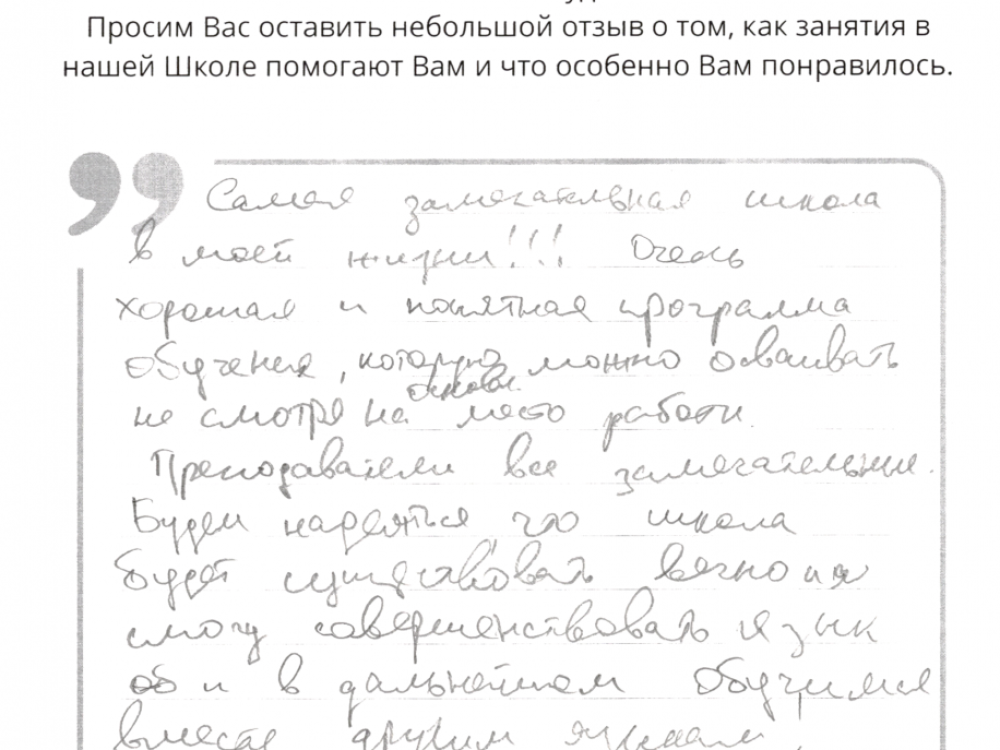 Просим Вас оставить небольшой отзыв о том, как занятия в
нашей Школе помогают Вам и что особенно Вам понравилось.
Самая замечательная школа
в моей жизни!!! Очень
хорошая и понятная программа
обучения, которую можно осваивать
основн.
не смотря на место работы.
Преподаватели все замечательные.
Будем надеяться что школа
будет существовать вечно и я
смогу совершенствовать язык
об и в дальнейшем обучимся
вместе другим языкам